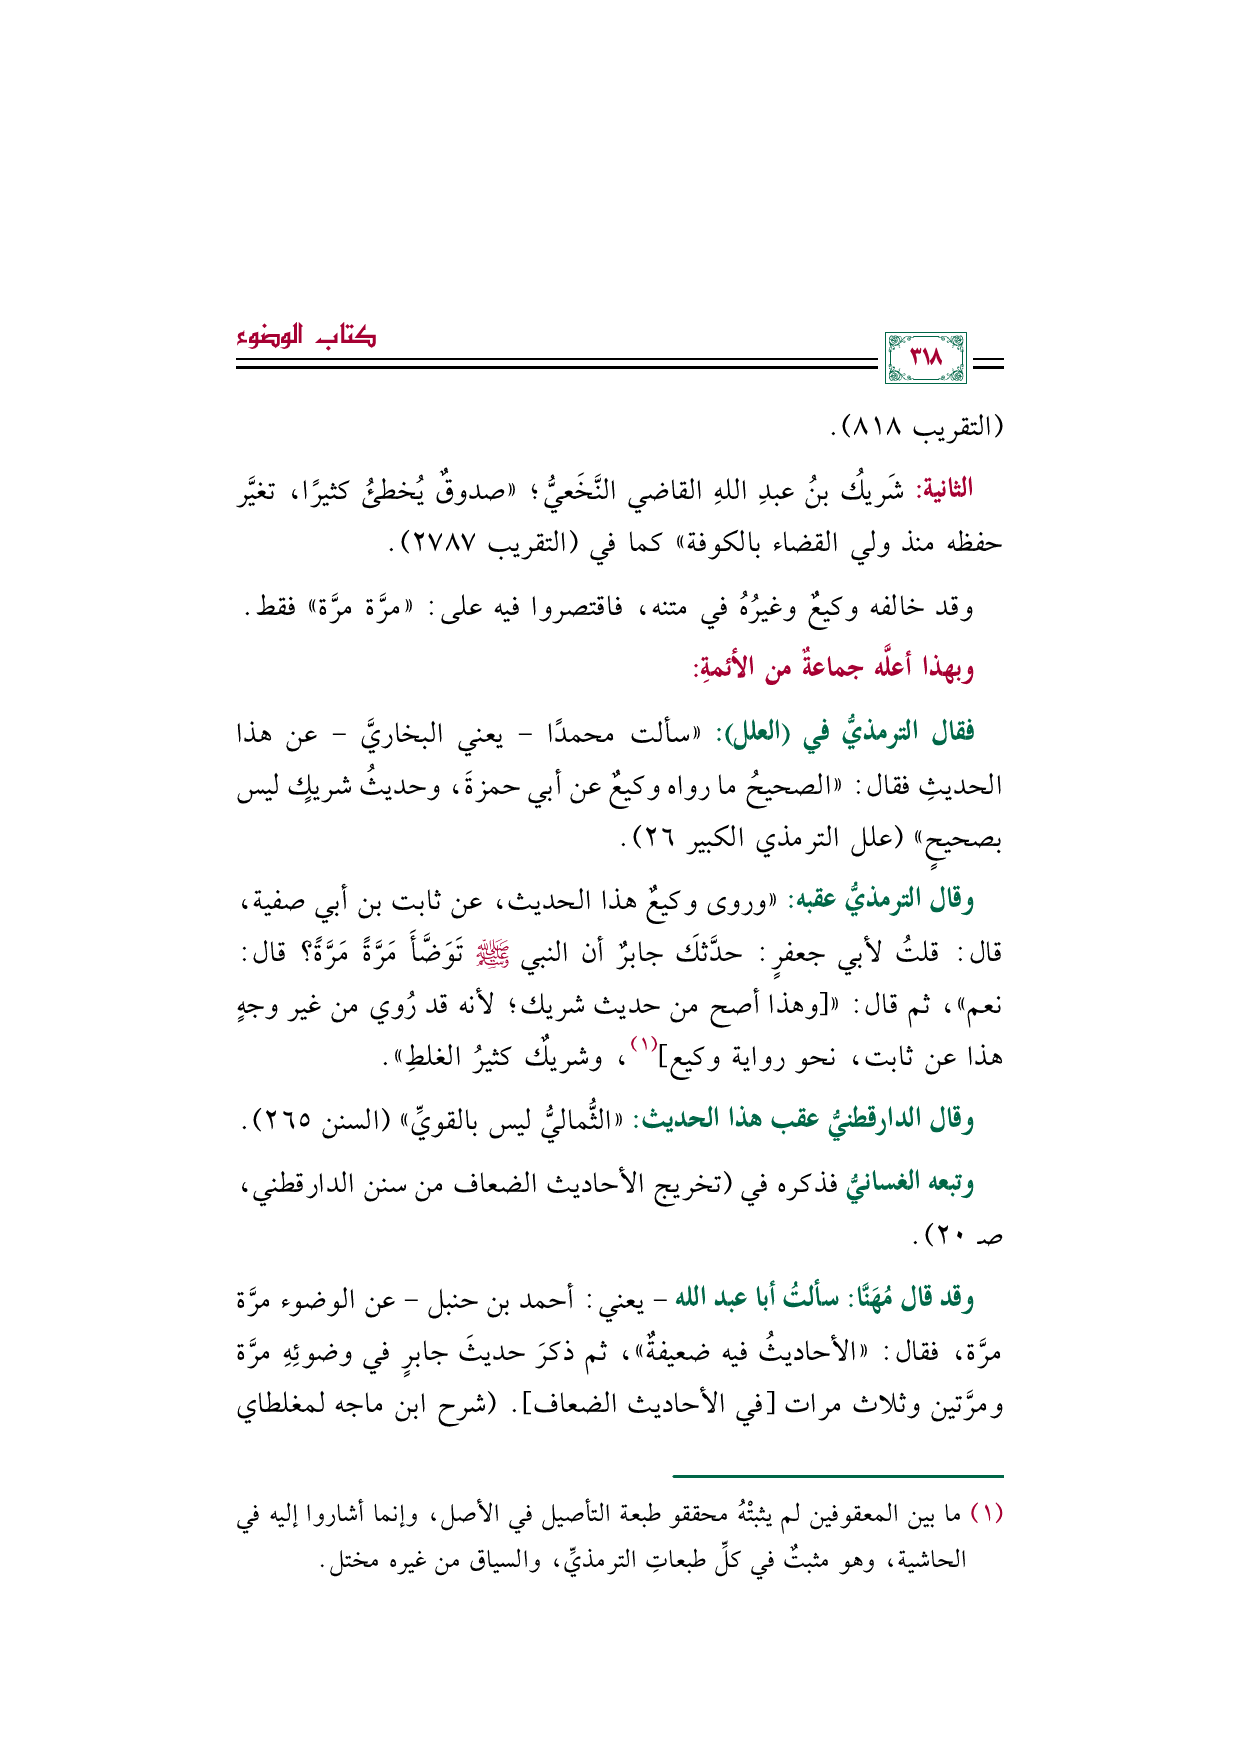 كتاب الوضوء
٣١٨
(التقريب ٨١٨).
الثانية: شَريكُ بنُ عبدِ اللهِ القاضي النَّخَعيُّ؛ «صدوقٌ يُخطئُ كثيرًا، تغيَّر
حفظه منذ ولي القضاء بالكوفة» كما في (التقريب ٢٧٨٧).
وقد خالفه وكيعٌ وغيرُهُ في متنه، فاقتصروا فيه على: «مرَّة مرَّة» فقط.
وبهذا أعلَّه جماعةٌ من الأئمةِ:
فقال الترمذيُّ في (العلل): «سألت محمدًا – يعني البخاريَّ – عن هذا
الحديثِ فقال: «الصحيحُ ما رواه وكيعٌ عن أبي حمزةَ، وحديثُ شريكٍ ليس
بصحيحٍ» (علل الترمذي الكبير ٢٦).
وقال الترمذيُّ عقبه: «وروى وكيعٌ هذا الحديث، عن ثابت بن أبي صفية،
قال: قلتُ لأبي جعفرٍ: حدَّثكَ جابرٌ أن النبي ﷺ تَوَضَّأَ مَرَّةً مَرَّةً؟ قال:
نعم»، ثم قال: «[وهذا أصح من حديث شريك؛ لأنه قد رُوي من غير وجهٍ
هذا عن ثابت، نحو رواية وكيع](١)، وشريكٌ كثيرُ الغلطِ».
وقال الدارقطنيُّ عقب هذا الحديث: «الثُّماليُّ ليس بالقويِّ» (السنن ٢٦٥).
وتبعه الغسانيُّ فذكره في (تخريج الأحاديث الضعاف من سنن الدارقطني،
صـ ٢٠).
وقد قال مُهَنَّا: سألتُ أبا عبد الله – يعني: أحمد بن حنبل – عن الوضوء مرَّة
مرَّة، فقال: «الأحاديثُ فيه ضعيفةٌ»، ثم ذكرَ حديثَ جابرٍ في وضوئِهِ مرَّة
ومرَّتين وثلاث مرات [في الأحاديث الضعاف]. (شرح ابن ماجه لمغلطاي
(١) ما بين المعقوفين لم يثبتْهُ محققو طبعة التأصيل في الأصل، وإنما أشاروا إليه في
الحاشية، وهو مثبتٌ في كلِّ طبعاتِ الترمذيِّ، والسياق من غيره مختل.